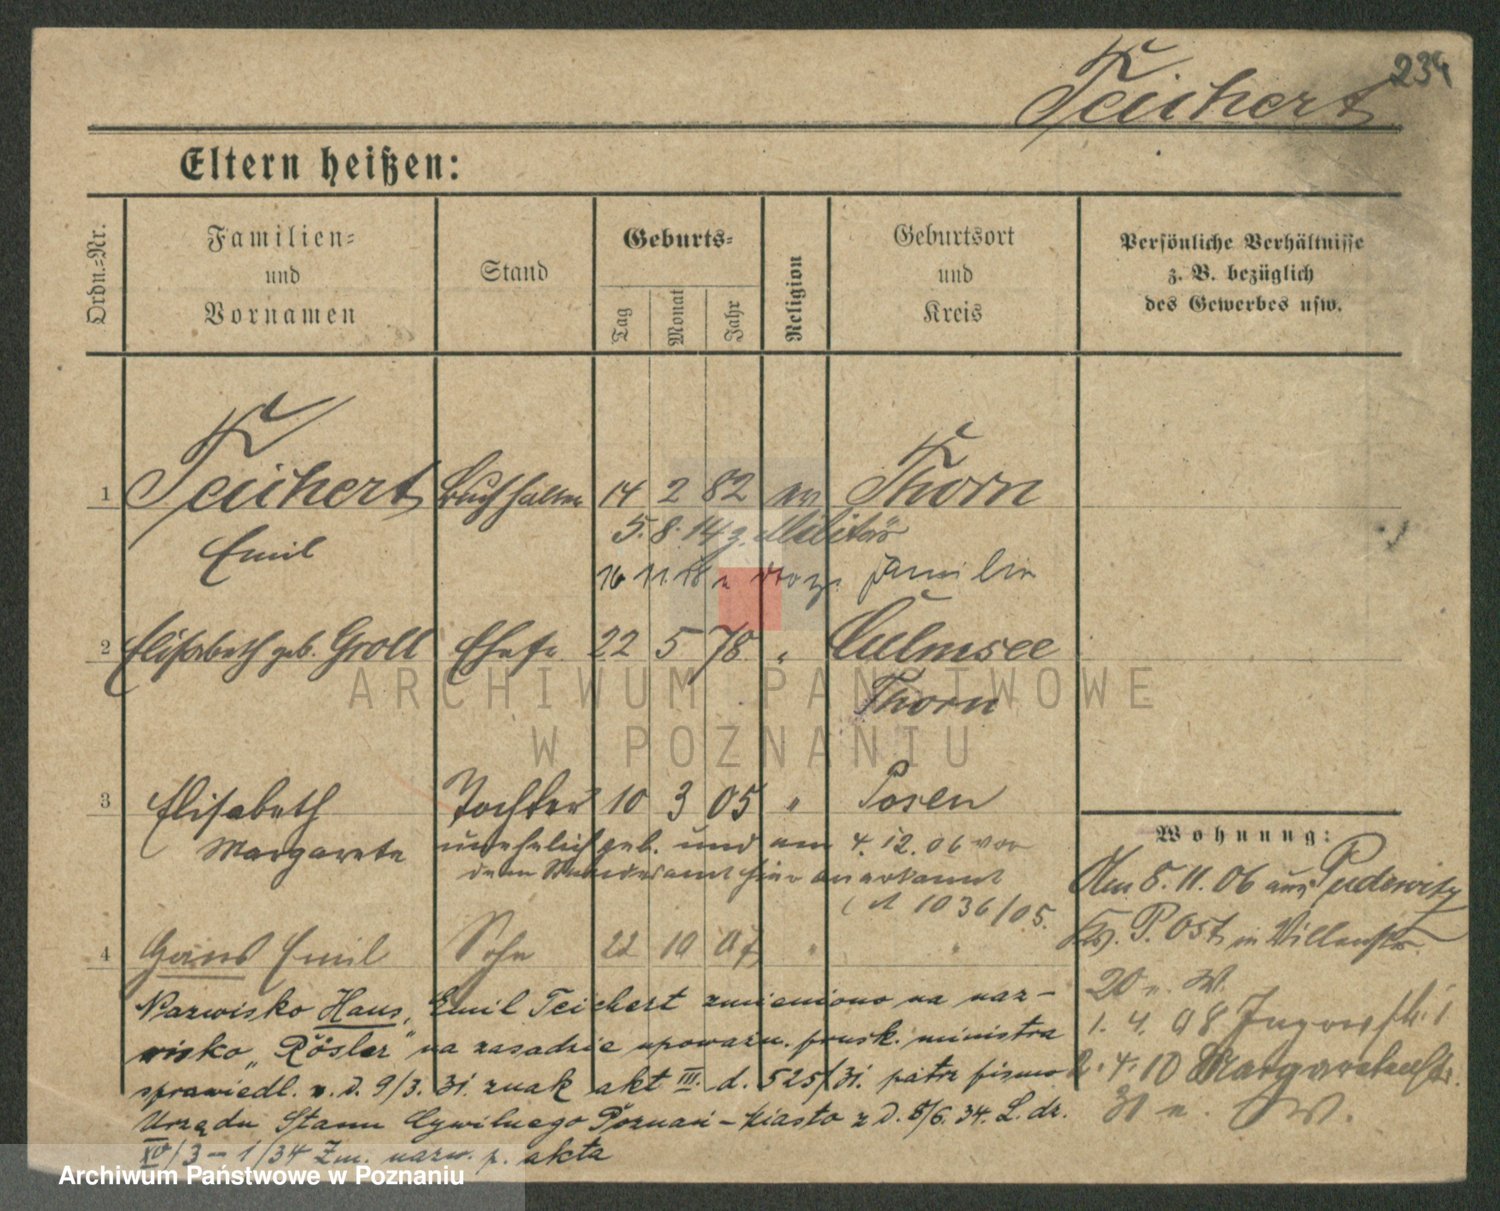 234
Teichert
Eltern heißen:
Ordn.-Nr.
Familien-
und
Vornamen
Stand
Geburts-
Tag
Monat
Jahr
Religion
Geburtsort
und
Kreis
Persönliche Verhältnisse
z. B. bezüglich
des Gewerbes usw.
1 Teichert Buchhalter 14 2 82 ev Thorn
Emil 5. 8. 14 z. Militär
16 11. 18 v. Familie
2 Elisabeth geb. Groll Ehefr. 22 5 78 " Culmsee
Thorn
ARCHIWUM PAŃSTWOWE
W POZNANIU
3 Elisabeth Tochter 10 3 05 " Posen
Margarete unehelich geb. und am 4. 12. 06 vor
dem Standesamt hier anerkannt
1036/05.
4 Hans Emil Sohn 22 10 07 " "
Nazwisko Hans, Emil Teichert zmieniono na naz-
wisko „Rösler" na zasadzie upoważn. prusk. ministra
sprawiedl. v. d. 9/3. 31. znak akt III. d. 525/31. patrz pismo
Urzędu Stanu Cywilnego Poznań - Miasto z d. 5/6. 34. L. dz.
XV/3 - 1/34 Zm. nazw. p. akta
Wohnung:
Am 5. 11. 06 aus Pudewitz
Krs. P. Ost in Villenstr.
20 n. W.
1. 4. 08
2. 4. 10 Margaretenstr.
31 n. W.
Archiwum Państwowe w Poznaniu